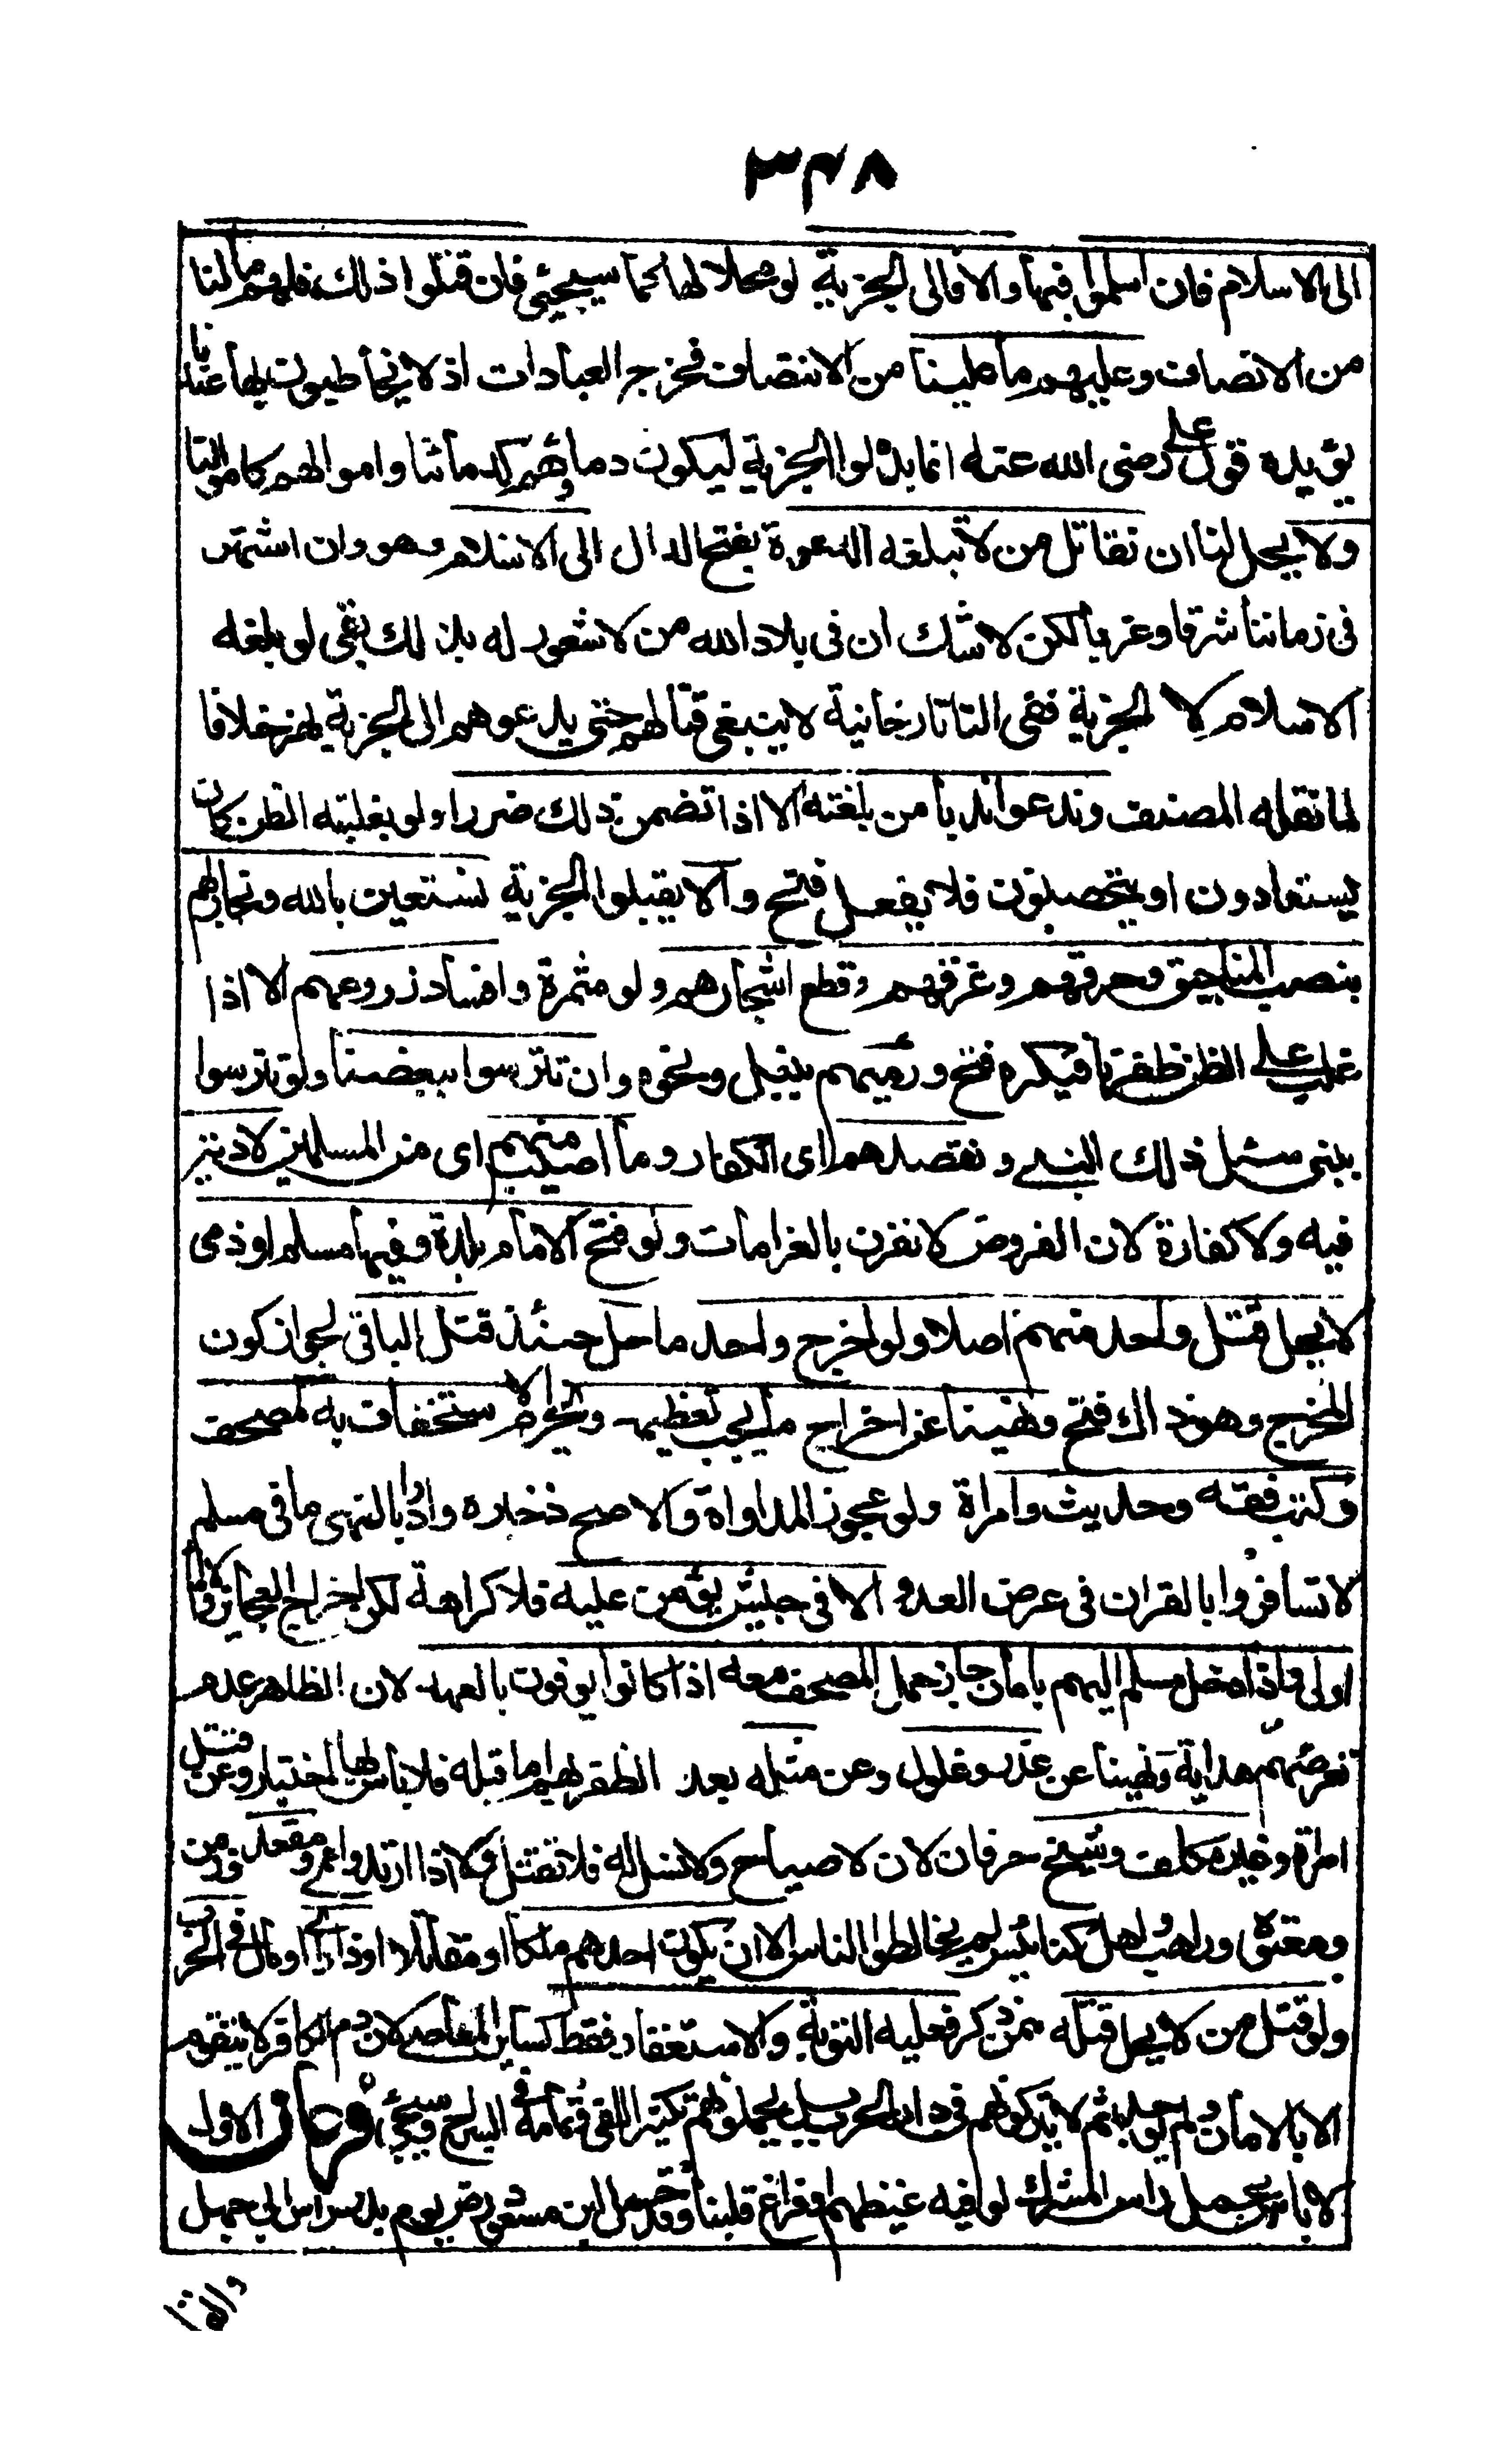 ٣٤٨
الى الاسلام فان اسلموا فبها والا فالى الجزية لو محلا لها كما سيجئ فان قبلوا ذلك فلهم ما لنا
من الانصاف وعليهم ما علينا من الانتصاف فخرج العبادات اذ لا يخاطبون بها عندنا
يؤيده قول على رضى الله عنه انما بذلوا الجزية ليكون دماؤهم كدمائنا واموالهم كاموالنا
ولا يحل لنا ان نقاتل من لا تبلغه الدعوة بفتح الدال الى الاسلام وهو وان اشتهر
فى زماننا شرقا وغربا لكن لا شك ان فى بلاد الله من لا شعور له بذلك بقى لو بلغه
الاسلام لا الجزية ففى التاتارخانية لا ينبغى قتالهم حتى يدعوهم الى الجزية نهر خلافا
لما نقله المصنف وندعو ندبا من بلغته الا اذا تضمن ذلك ضررا ولو بغلبة الظن كان
يستعدون او يتحصنون فلا يفعل فتح والا يقبلوا الجزية نستعين بالله ونحاربهم
بنصب المناجيق وحرقهم وغرقهم وقطع اشجارهم ولو مثمرة وافساد زروعهم الا اذا
غلب على الظن ظفرنا فيكره فتح ورميهم بنبل ونحوه وان تترسوا ببعضنا ولو تترسوا
بنبى سئل ذلك النبى ونقصدهم اى الكفار وما اصيب منهم اى من المسلمين لا دية
فيه ولا كفارة لان الفروض لا تقرن بالغرامات ولو فتح الامام بلدة وفيها مسلم او ذمى
لا يحل قتل واحد منهم اصلا ولو اخرج واحد ما حل حينئذ قتل الباقى لجواز كون
المخرج هو ذاك فتح ونهينا عن اخراج ما يجب تعظيمه ويحرم الاستخفاف به كمصحف
وكتب فقه وحديث وامراة ولو عجوز المداواة والاصح ذخيره وارادا بالنهى ما فى مسلم
لا تسافروا بالقران فى عرض العدو الا فى جيش يؤمن عليه فلا كراهة لكن اخراج العجائز والاماء
اولى واذا دخل مسلم اليهم بامان جاز حمل المصحف معه اذا كانوا يوفون بالعهد لان الظاهر عدم
تعرضهم هداية ونهينا عن غدر وغلول وعن مثله بعد الظفر بهم اما قبله فلا باس بها اختيار وعن قتل
امراة وغير مكلف وشيخ خرفان لان لا صياح ولا نسل له فلا تقتل ولا اذا ارتد واعمى ومقعد وزمن
ومعتوه وراهب اهل كنائس لم يخالطوا الناس الا ان يكون احدهم ملكا او مقاتلا او ذا راى او مال فى الحرب
ولو قتل من لا يحل قتله ممن ذكر فعليه التوبة والاستغفار فقط كسائر المعاصى لان دم الكافر لا يتقوم
الا بالامان ولم يوجد ثم لا يتركونهم فى دار الحرب بل يحملونهم تكثيرا للفئ وتمامه فى السراج وسيجئ فرعان الاول
لا باس بحمل راس المشرك لو فيه غيظهم او فراغ قلبنا وقد حمل ابن مسعود رض يوم بدر راس ابى جهل